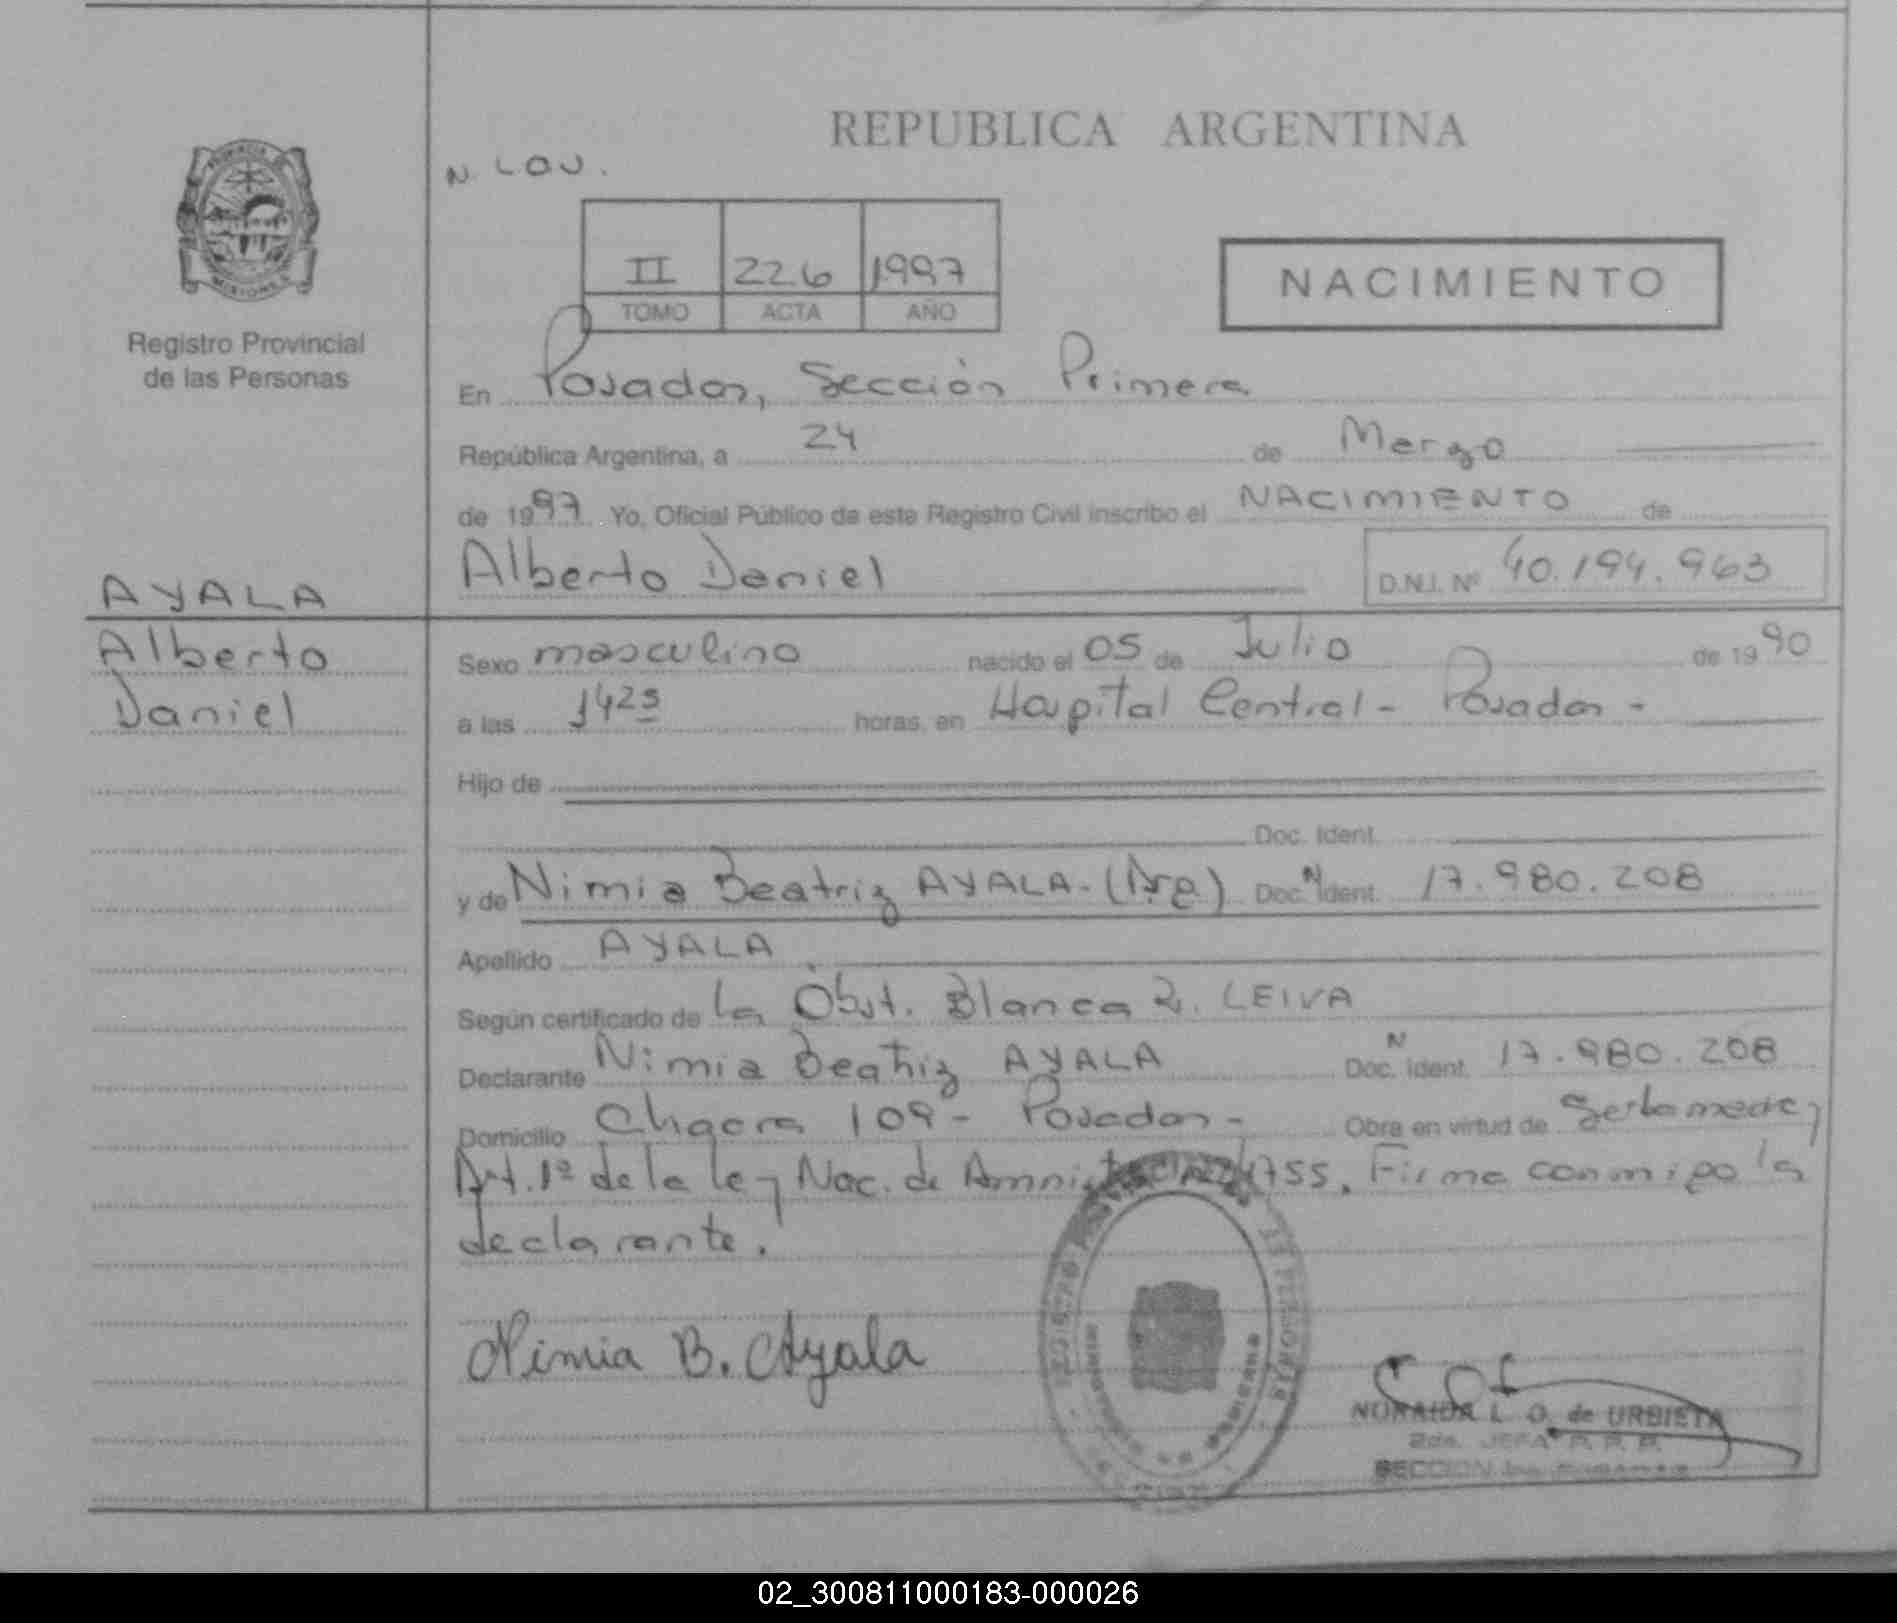 REPUBLICA ARGENTINA
N. LOU.
II 226 1997
TOMO ACTA AÑO
NACIMIENTO
Registro Provincial
de las Personas
En Posadas, Sección Primera
República Argentina, a 24 de Marzo
de 1997 Yo, Oficial Público de este Registro Civil inscribo el NACIMIENTO de
Alberto Daniel D.N.I. Nº 40.194.963
AYALA
Alberto
Daniel
Sexo masculino nacido el 05 de Julio de 1990
a las 1425 horas, en Hospital Central - Posadas -
Hijo de
Doc. Ident.
y de Nimia Beatriz AYALA - (Arg) Doc. N Ident. 17.980.208
Apellido AYALA
Según certificado de la Obst. Blanca R. LEIVA
Declarante Nimia Beatriz AYALA Doc. N Ident. 17.980.208
Domicilio Chacra 109 - Posadas - Obra en virtud de
Art. 1º de la ley Nac. de 755. Firma conmigo la
declarante.
Nimia B. Ayala
NORAIDA L. O. de URBIETA
2da. JEFA R. P. P.
SECCION 1ra. POSADAS
02_300811000183-000026